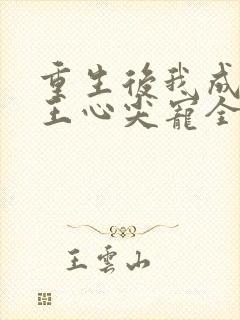 重生後我成
王心尖寵全
王雲山